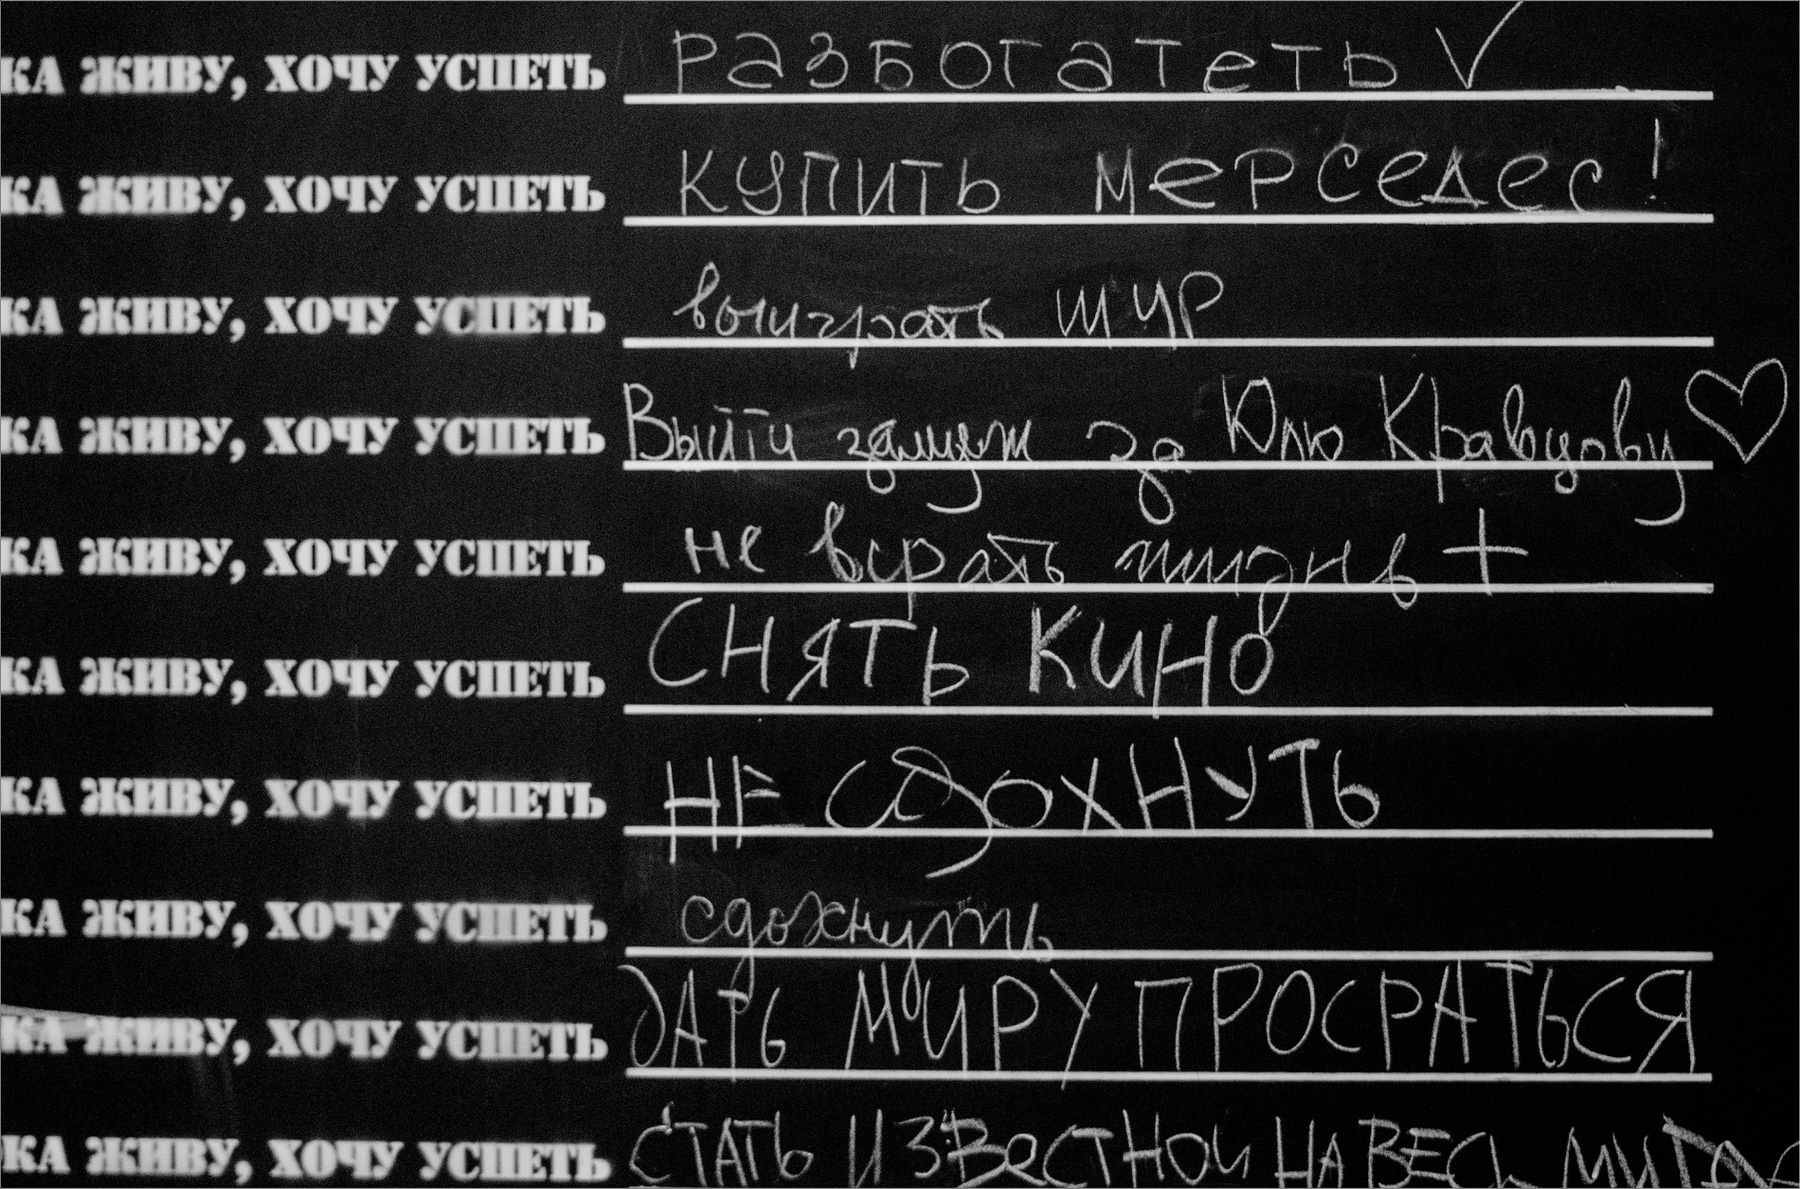 КА ЖИВУ, ХОЧУ УСПЕТЬ разбогатеть ✓
КА ЖИВУ, ХОЧУ УСПЕТЬ купить мерседес!
КА ЖИВУ, ХОЧУ УСПЕТЬ выиграть
КА ЖИВУ, ХОЧУ УСПЕТЬ Выйти замуж за Юлю Кравцову ♡
КА ЖИВУ, ХОЧУ УСПЕТЬ не всрать жизнь +
КА ЖИВУ, ХОЧУ УСПЕТЬ СНЯТЬ КИНО
КА ЖИВУ, ХОЧУ УСПЕТЬ НЕ СДОХНУТЬ
КА ЖИВУ, ХОЧУ УСПЕТЬ сдохнуть
КА ЖИВУ, ХОЧУ УСПЕТЬ ДАТЬ МИРУ ПРОСРАТЬСЯ
КА ЖИВУ, ХОЧУ УСПЕТЬ СТАТЬ ИЗВЕСТНОЙ НА ВЕСЬ